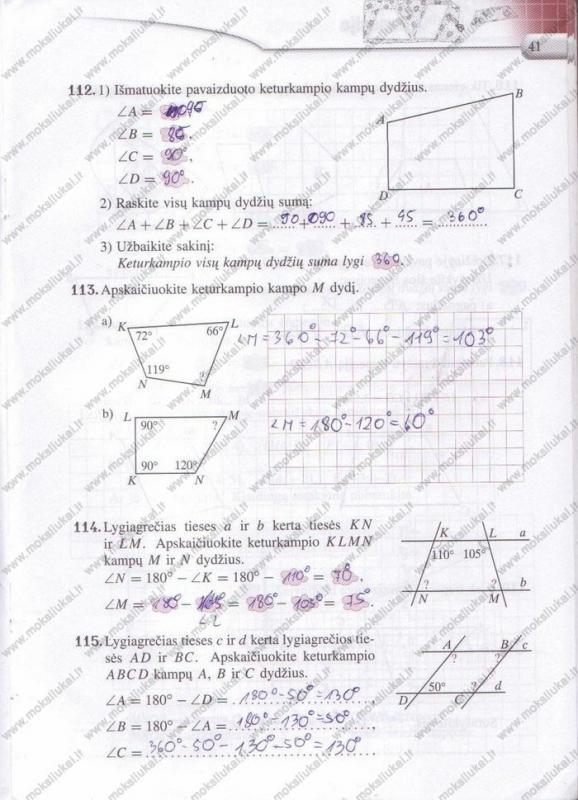 41
112. 1) Išmatuokite pavaizduoto keturkampio kampų dydžius.
∠A = 95
∠B = 85.
∠C = 90°.
∠D = 90°.
A B C D
2) Raskite visų kampų dydžių sumą:
∠A + ∠B + ∠C + ∠D = 90 + 90 + 85 + 95 = 360°
3) Užbaikite sakinį:
Keturkampio visų kampų dydžių suma lygi 360.
113. Apskaičiuokite keturkampio kampo M dydį.
a) K 72° 66° L 119° N ? M
∠M = 360° - 72° - 66° - 119° = 103°
b) L 90° ? M 90° 120° K N
∠M = 180° - 120° = 60°
114. Lygiagrečias tieses a ir b kerta tiesės KN
ir LM. Apskaičiuokite keturkampio KLMN
kampų M ir N dydžius.
∠N = 180° − ∠K = 180° − 110° = 70°.
∠M = 180° − ∠L = 180° − 105° = 75°.
K L a 110° 105° ? ? b N M
115. Lygiagrečias tieses c ir d kerta lygiagrečios tie-
sės AD ir BC. Apskaičiuokite keturkampio
ABCD kampų A, B ir C dydžius.
∠A = 180° − ∠D = 180° - 50° = 130°,
∠B = 180° − ∠A = 180° - 130° = 50°,
∠C = 360° - 50° - 130° - 50° = 130°
A B c ? ? 50° ? d D C
www.moksliukai.lt